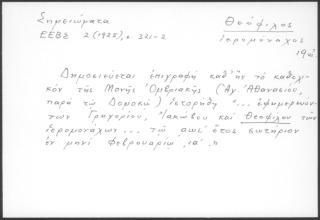 Σημειώματα
Θεόφιλος
ΕΕΒΣ 2 (1925), σ. 321-2
ἱερομόναχος
19α.
Δημοσιεύεται ἐπιγραφὴ καθ' ἣν τὸ καθολι-
κὸν τῆς Μονῆς Ὀμβριακῆς (Ἁγ. Ἀθανασίου,
παρὰ τῷ Δομοκῷ) ἱστορήθη "... ἐφημερευόν-
των Γρηγορίου, Ἰακώβου καὶ Θεοφίλου τῶν
ἱερομονάχων... τῷ αωι' ἔτος σωτήριον
ἐν μηνὶ Φεβρουαρίῳ ια'."